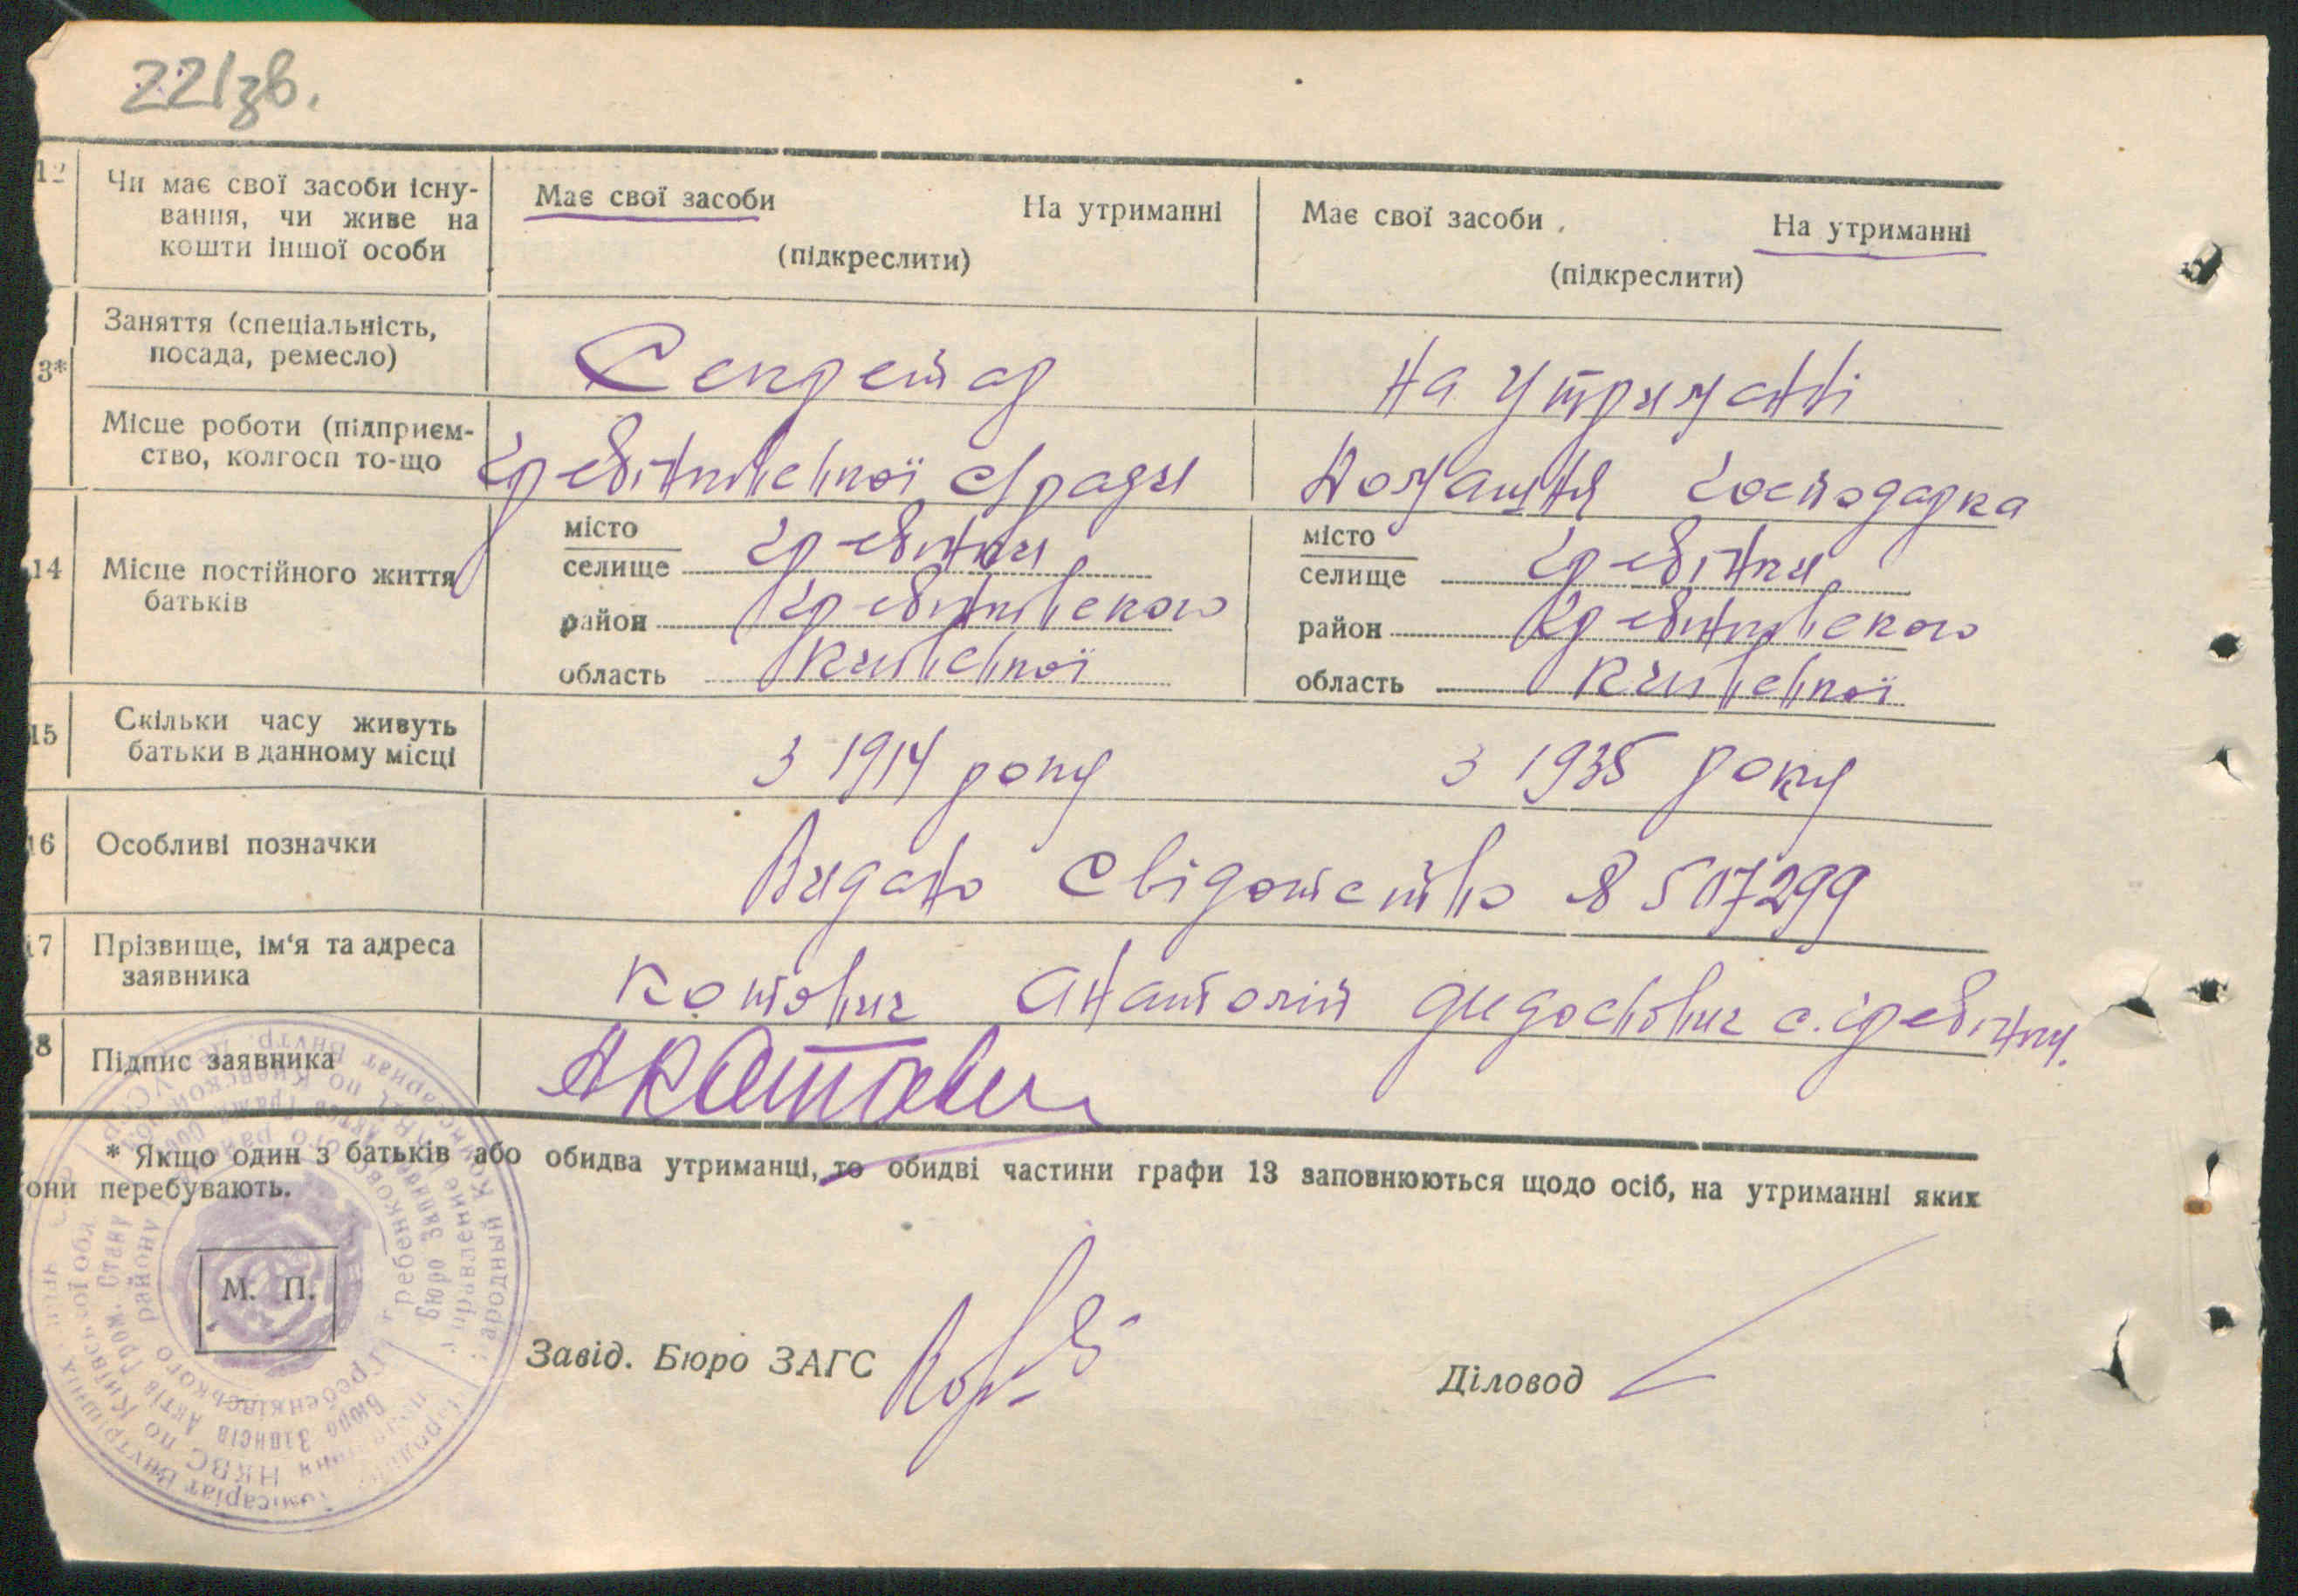 221зв.
12 Чи має свої засоби існу-
вання, чи живе на
кошти іншої особи
Має свої засоби На утриманні
(підкреслити)
Має свої засоби На утриманні
(підкреслити)
3* Заняття (спеціальність,
посада, ремесло)
Секретар
на утриманні
Місце роботи (підприєм-
ство, колгосп то-що
Гребінківської с/ради
Домашня господарка
14 Місце постійного життя
батьків
місто
селище Гребінки
район Гребінківського
область Київської
місто
селище Гребінки
район Гребінківського
область Київської
15 Скільки часу живуть
батьки в данному місці
з 1914 року
з 1935 року
16 Особливі позначки
Видано свідотство 507299
17 Прізвище, ім'я та адреса
заявника
Котович Анатолій с. Гребінки.
8 Підпис заявника
АКотович
* Якщо один з батьків або обидва утриманці, то обидві частини графи 13 заповнюються щодо осіб, на утриманні яких
они перебувають.
М. П.
Завід. Бюро ЗАГС
Діловод